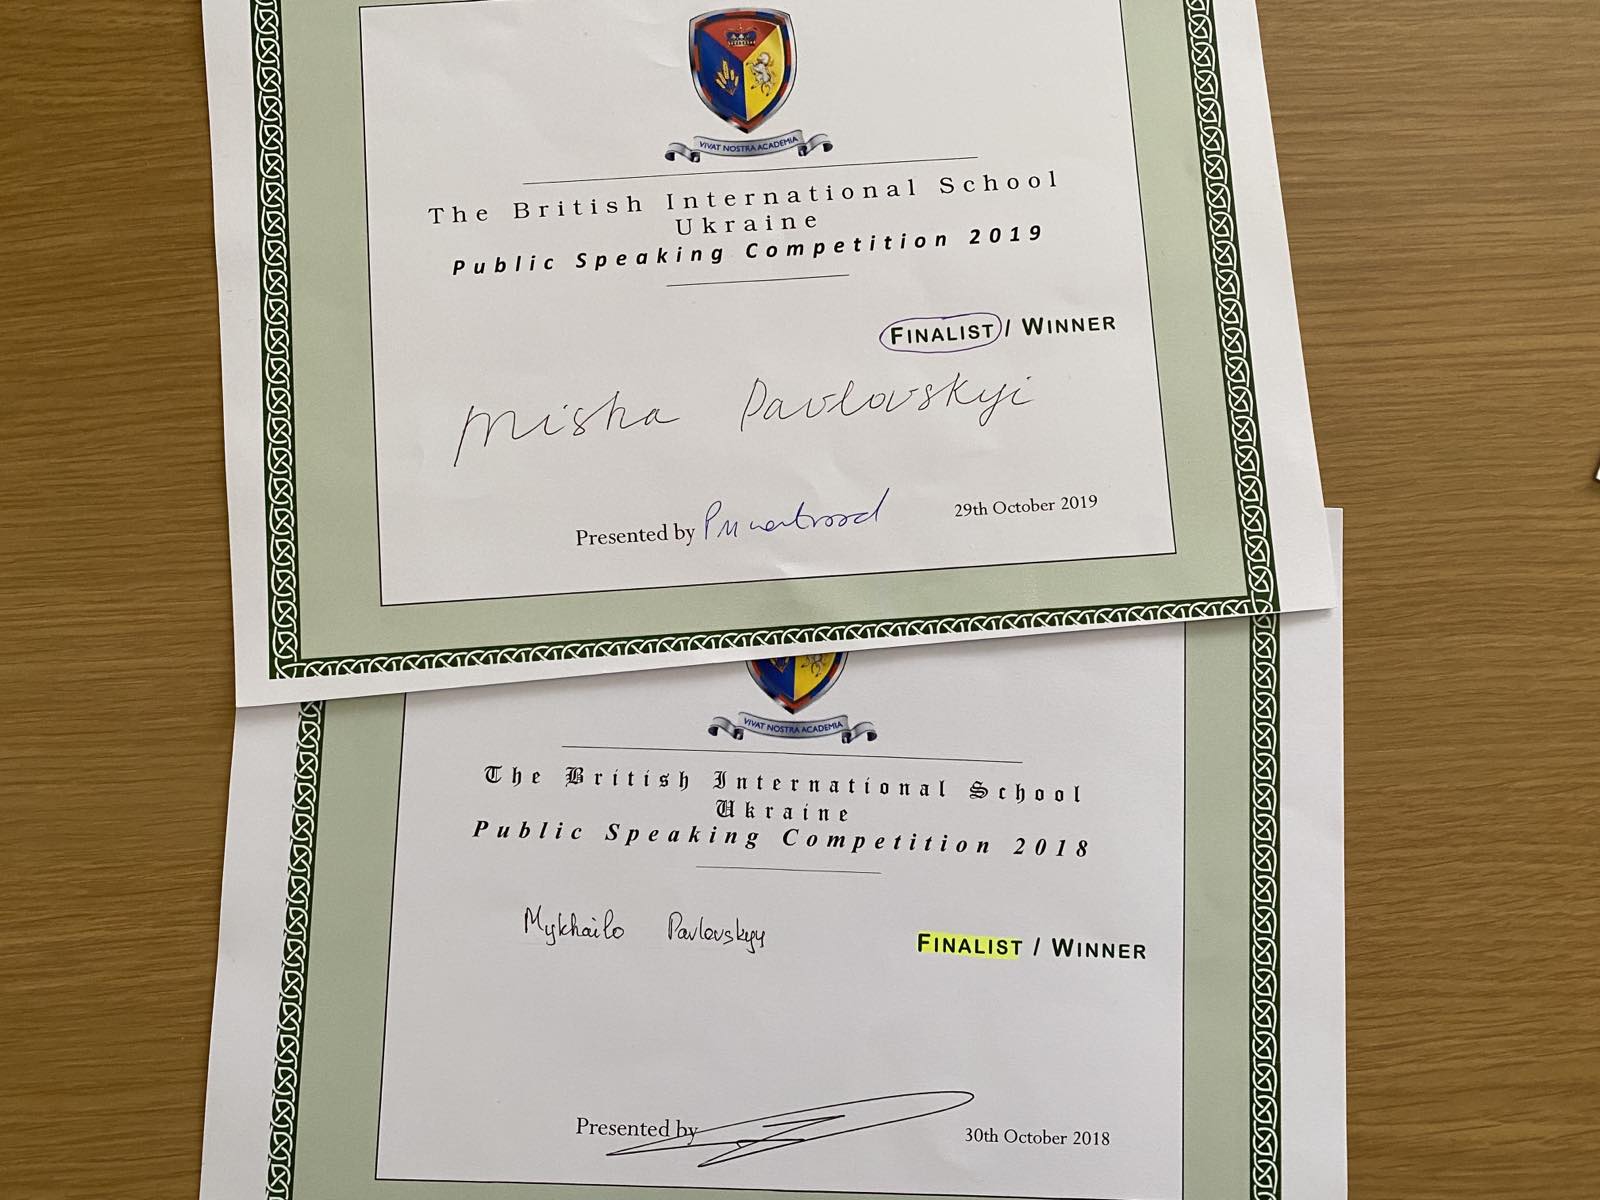 VIVAT NOSTRA ACADEMIA
The British International School
Ukraine
Public Speaking Competition 2019
FINALIST / WINNER
Misha Pavlovskyi
Presented by
29th October 2019
VIVAT NOSTRA ACADEMIA
The British International School
Ukraine
Public Speaking Competition 2018
Mykhailo Pavlovskyy
FINALIST / WINNER
Presented by
30th October 2018